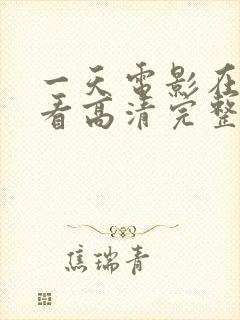 一天电影在
看高清完整
焦瑞青